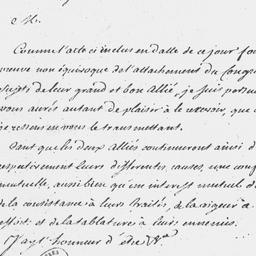 M.
Comme l'acte ci inclus en datte de ce jour fou
preuve non équivoque de l'attachement du Congr
sujets de leur grand et bon Allié, je suis persua
vous aurés autant de plaisir à le recevoir, que
ressens en vous le transmettant.
Tant que les deux Alliés continueront ainsi d
respectivement leurs differentes causes, une conf
mutuelle, aussi bien qu'un interest mutuel d
de la consistance à leurs traités, de la vigueur à
effort et de la tablature à leurs ennemies.
J'ay l'honneur d'être &ca